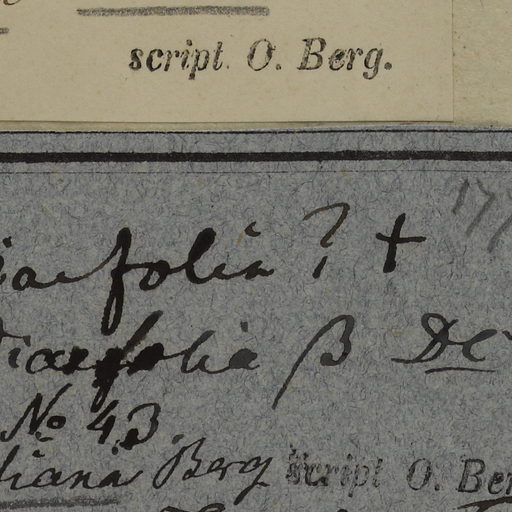 script. O. Berg.
iaefolia ? +
iaefolia β DC
No 43.
tiana Berg script O. Ber